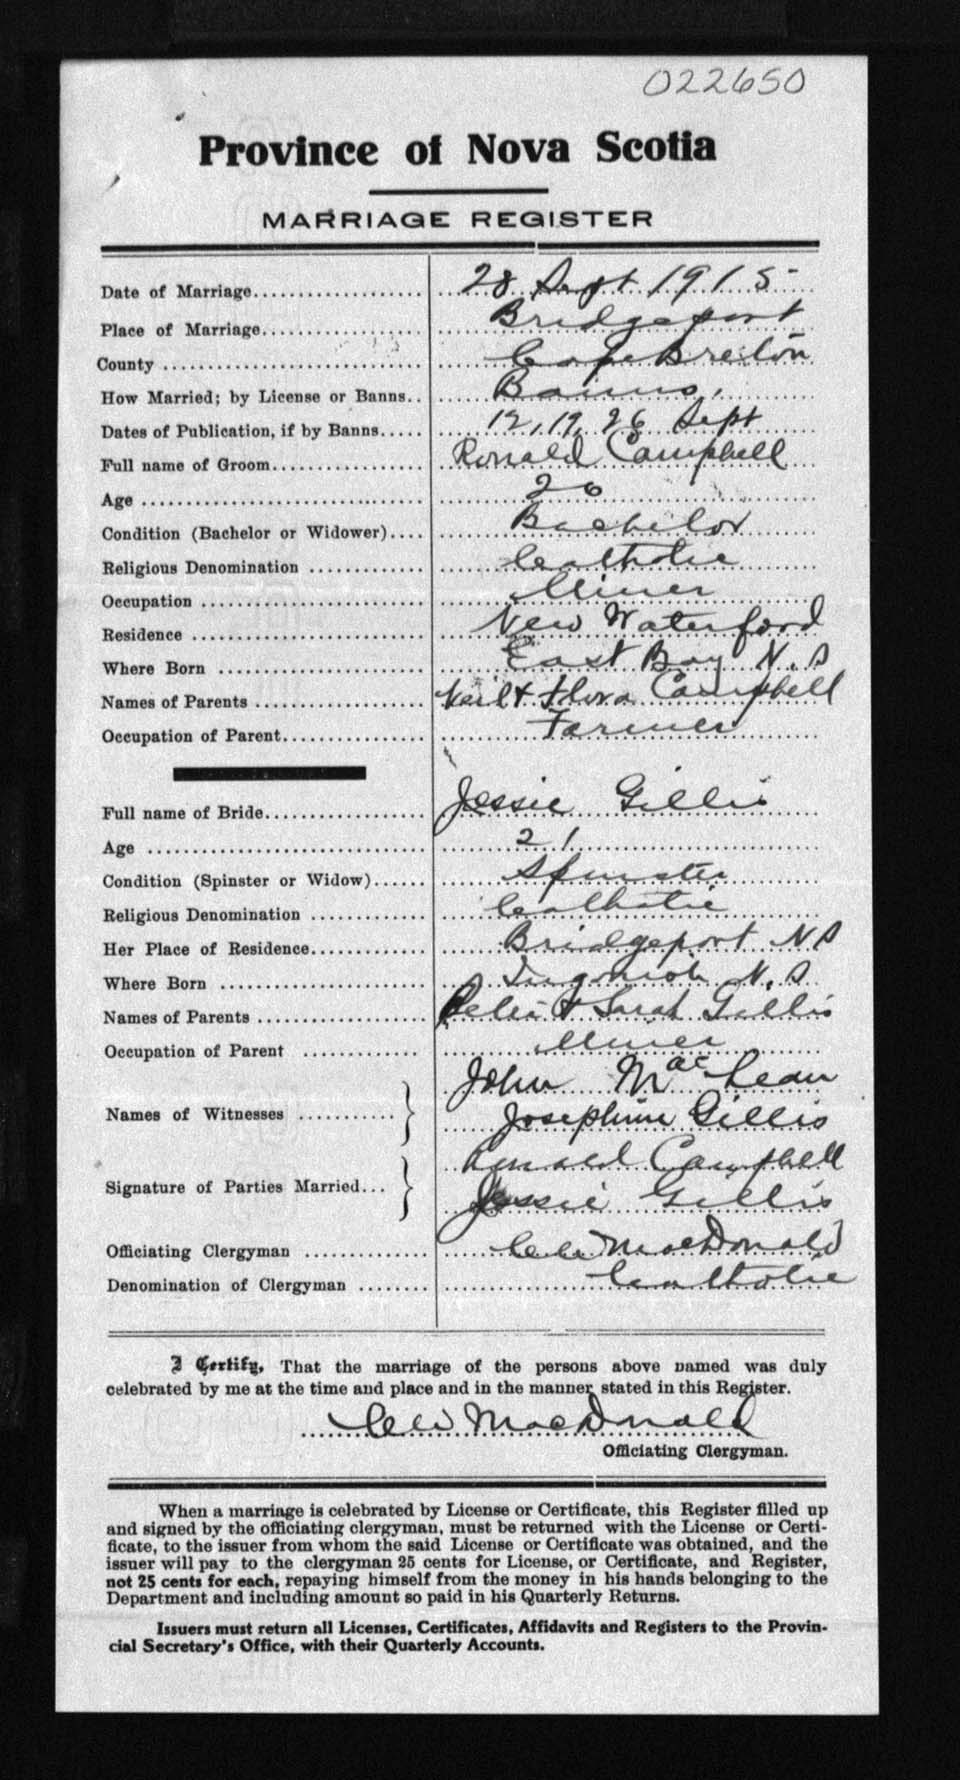 022650
Province of Nova Scotia
MARRIAGE REGISTER
Date of Marriage 28 Sept 1915
Place of Marriage Bridgeport
County Cape Breton
How Married; by License or Banns Banns.
Dates of Publication, if by Banns 12, 19, 26 Sept
Full name of Groom Ronald Campbell
Age 26
Condition (Bachelor or Widower) Bachelor
Religious Denomination Catholic
Occupation Miner
Residence New Waterford
Where Born East Bay N.S
Names of Parents Neil & Flora Campbell
Occupation of Parent Farmer
Full name of Bride Jessie Gillis
Age 21
Condition (Spinster or Widow) Spinster
Religious Denomination Catholic
Her Place of Residence Bridgeport NS
Where Born Ingonish N.S
Names of Parents Peter & Sarah Gillis
Occupation of Parent Miner
John MacLean
Names of Witnesses
Josephine Gillis
Ronald Campbell
Signature of Parties Married
Jessie Gillis
Officiating Clergyman MacDonald
Denomination of Clergyman Catholic
I Certify, That the marriage of the persons above named was duly
celebrated by me at the time and place and in the manner stated in this Register.
MacDonald
Officiating Clergyman.
When a marriage is celebrated by License or Certificate, this Register filled up
and signed by the officiating clergyman, must be returned with the License or Certi-
ficate, to the issuer from whom the said License or Certificate was obtained, and the
issuer will pay to the clergyman 25 cents for License, or Certificate, and Register,
not 25 cents for each, repaying himself from the money in his hands belonging to the
Department and including amount so paid in his Quarterly Returns.
Issuers must return all Licenses, Certificates, Affidavits and Registers to the Provin-
cial Secretary's Office, with their Quarterly Accounts.